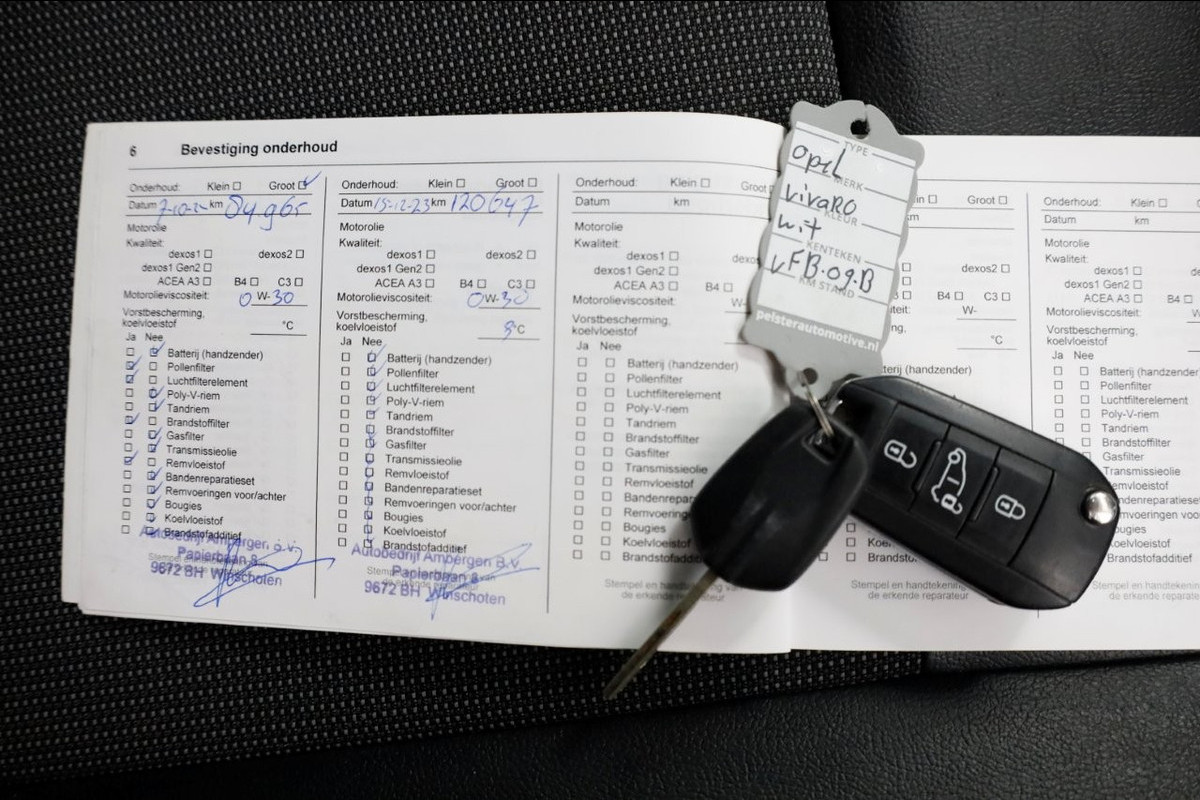 6 Bevestiging onderhoud
Onderhoud: Klein Groot
Datum km 84965
Motorolie
Kwaliteit:
dexos1 dexos2
dexos1 Gen2
ACEA A3 B4 C3
Motorolieviscositeit: 0 W-30
Vorstbescherming,
koelvloeistof °C
Ja Nee
Batterij (handzender)
Pollenfilter
Luchtfilterelement
Poly-V-riem
Tandriem
Brandstoffilter
Gasfilter
Transmissieolie
Remvloeistof
Bandenreparatieset
Remvoeringen voor/achter
Bougies
Koelvloeistof
Brandstofadditief
Autobedrijf Ambergen, B.V.
Papierbaan 8
9672 BH Winschoten
Onderhoud: Klein Groot
Datum 15-12-23 km 120647
Motorolie
Kwaliteit:
dexos1 dexos2
dexos1 Gen2
ACEA A3 B4 C3
Motorolieviscositeit: 0W-30
Vorstbescherming,
koelvloeistof °C
Ja Nee
Batterij (handzender)
Pollenfilter
Luchtfilterelement
Poly-V-riem
Tandriem
Brandstoffilter
Gasfilter
Transmissieolie
Remvloeistof
Bandenreparatieset
Remvoeringen voor/achter
Bougies
Koelvloeistof
Brandstofadditief
Autobedrijf Ambergen B.V.
Papierbaan 8
9672 BH Winschoten
Onderhoud: Klein Groot
Datum km
Motorolie
Kwaliteit:
dexos1
dexos1 Gen2
ACEA A3 B4
Motorolieviscositeit: W-
Vorstbescherming,
koelvloeistof
Ja Nee
Batterij (handzender)
Pollenfilter
Luchtfilterelement
Poly-V-riem
Tandriem
Brandstoffilter
Gasfilter
Transmissieolie
Remvloeistof
Bandenrepar
Remvoering
Bougies
Koelvloeistof
Brandstofadditief
Stempel en handtekening van
de erkende reparateur
TYPE
Opel
MERK
vivaro
KLEUR
wit
KENTEKEN
VFB.09.B
KM STAND
pelsterautomotive.nl
n Groot
km
dexos2
B4 C3
W-
°C
Stempel en handtekening
de erkende reparateur
Onderhoud: Klein
Datum km
Motorolie
Kwaliteit:
dexos1
dexos1 Gen2
ACEA A3 B4
Motorolieviscositeit: W
Vorstbescherming,
koelvloeistof
Ja Nee
Batterij (handzender)
Pollenfilter
Luchtfilterelement
Poly-V-riem
Tandriem
Brandstoffilter
Gasfilter
Transmissieolie